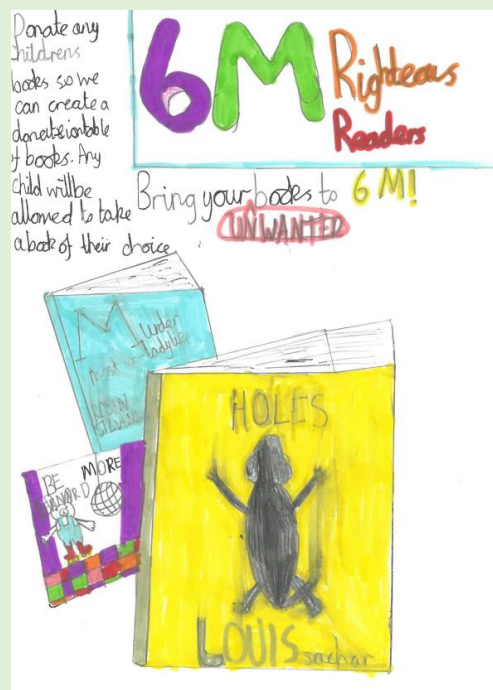 Donate any
childrens
books so we
can create a
donateiontable
of books. Any
child will be
allowed to take
a book of their choice
6M
Righteous
Readers
Bring your books to 6M!
UNWANTED
Murder
most un
ladylike
ROBIN
STEVENS
BE MORE
BERNARD
HOLES
LOUIS sachar